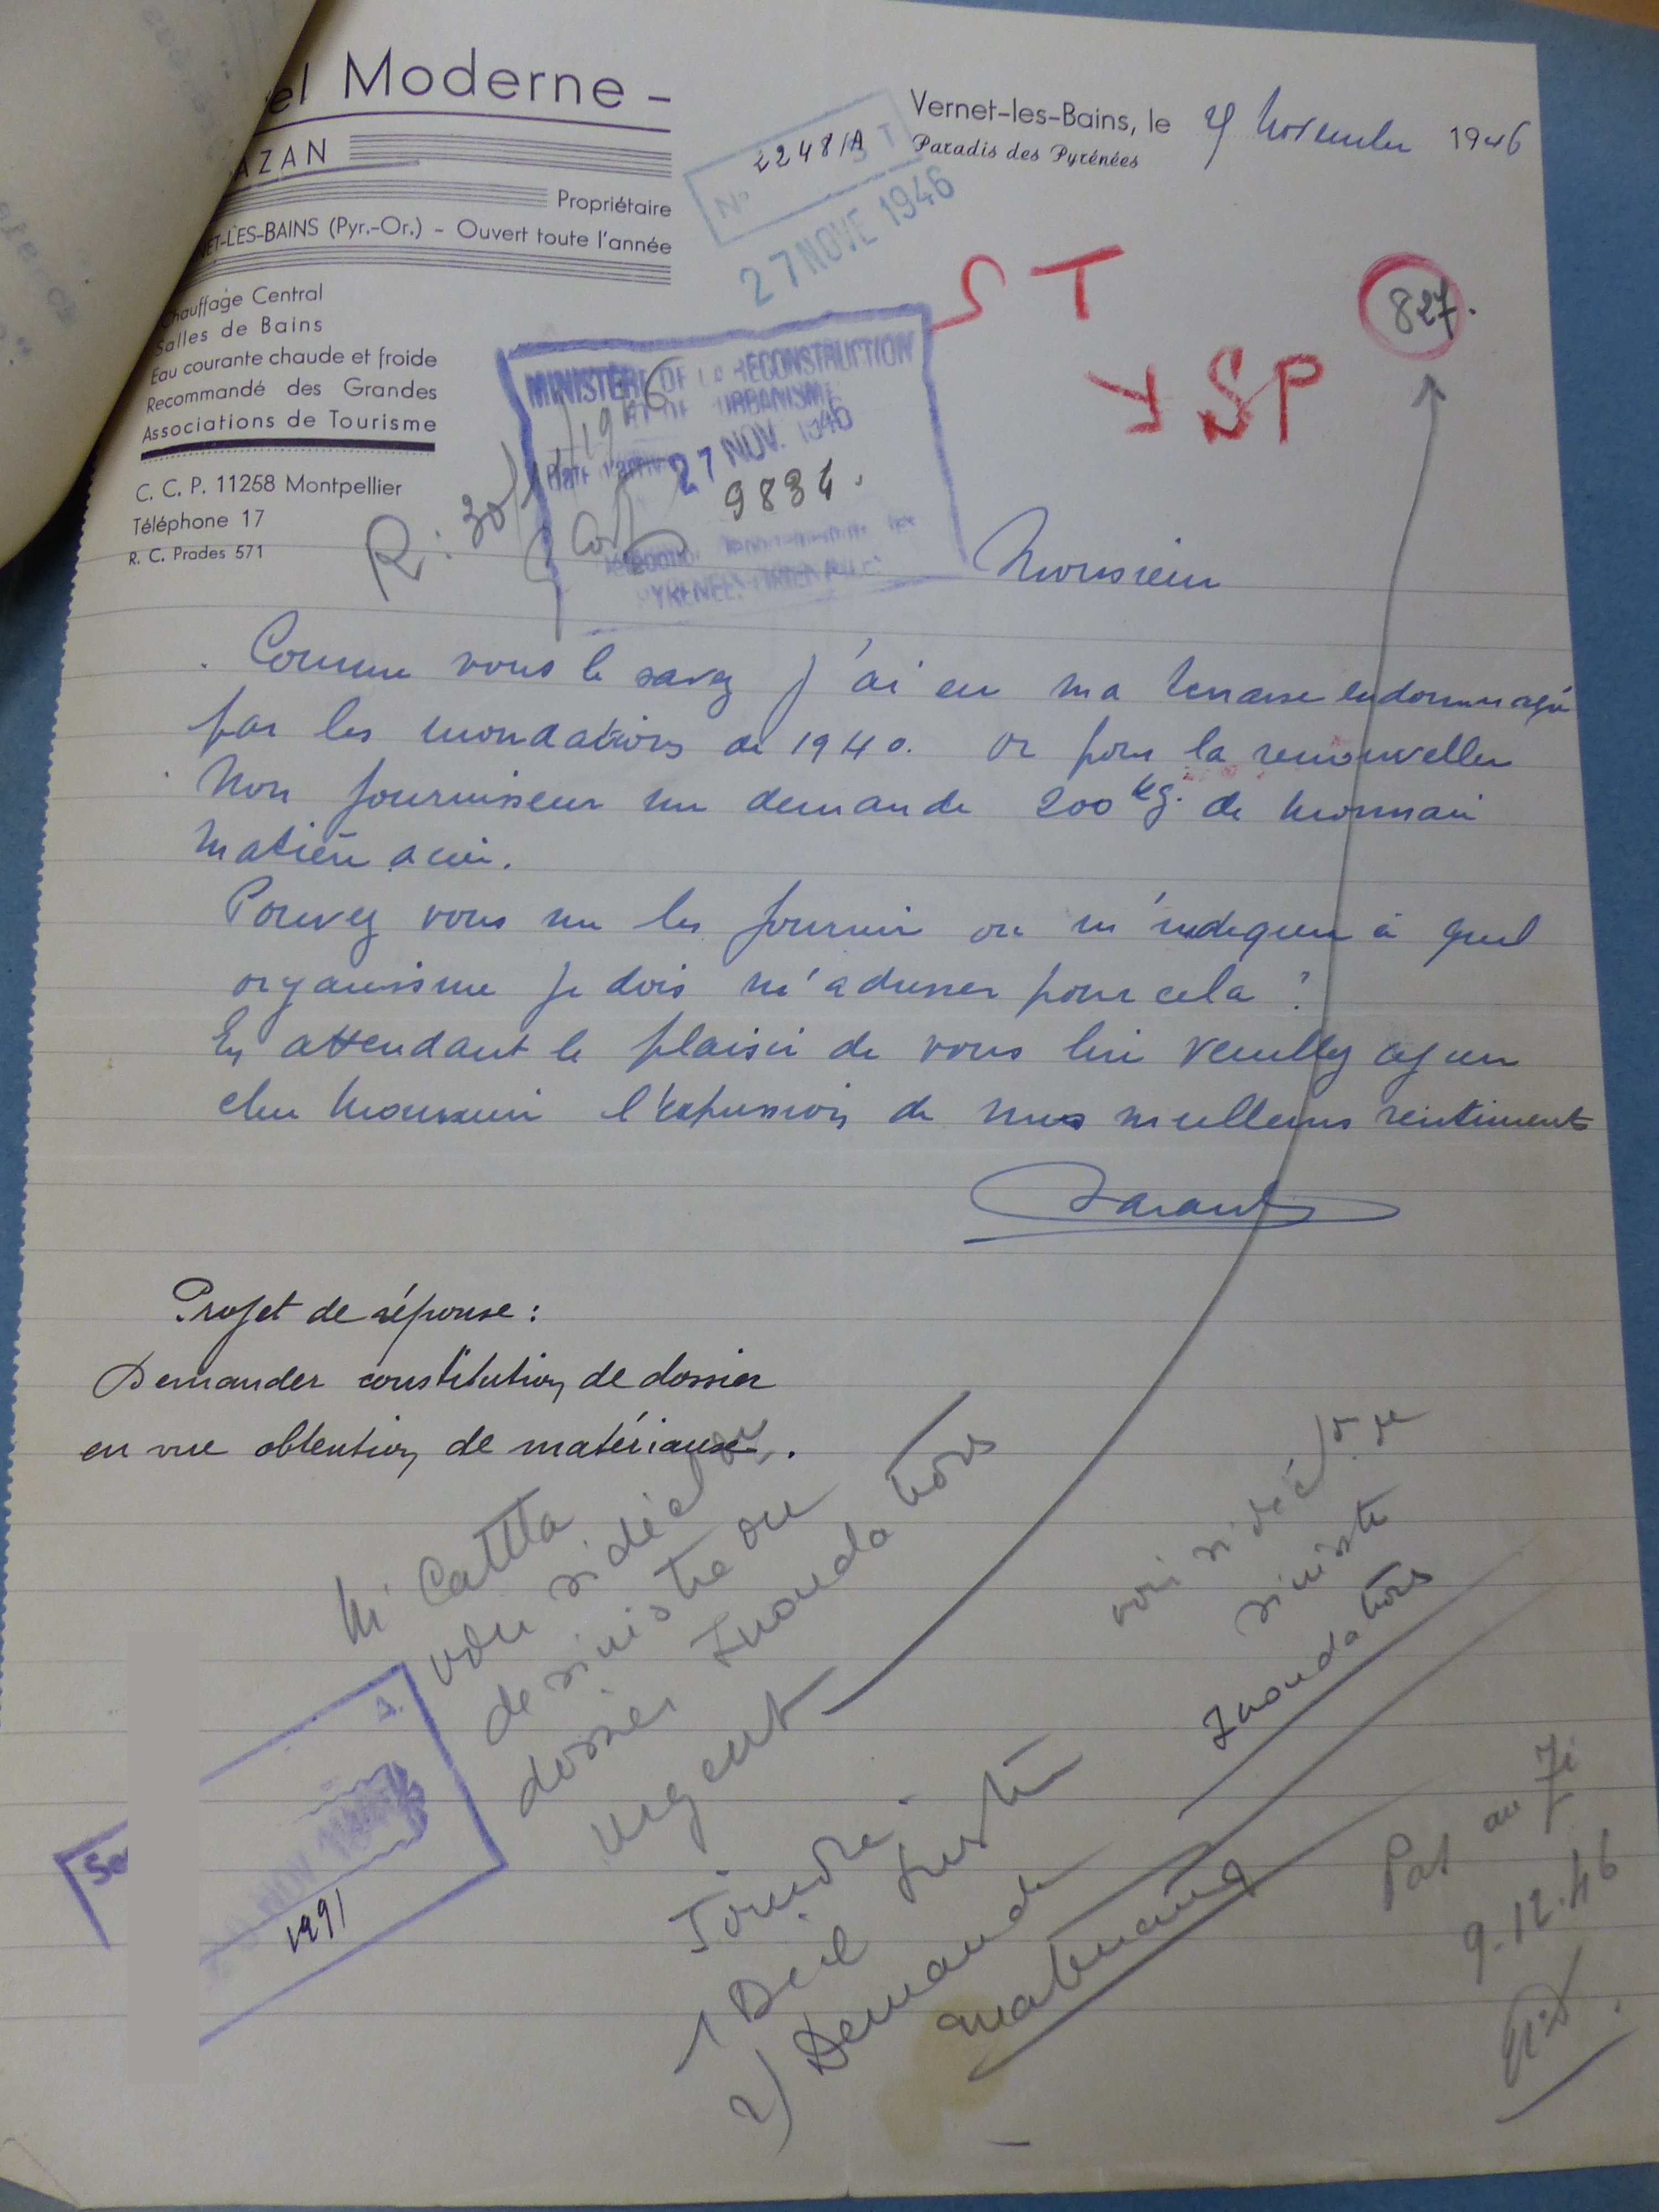 el Moderne -
AZAN
Propriétaire
NET-LES-BAINS (Pyr.-Or.) - Ouvert toute l'année
Chauffage Central
Salles de Bains
Eau courante chaude et froide
Recommandé des Grandes
Associations de Tourisme
C. C. P. 11258 Montpellier
Téléphone 17
R. C. Prades 571
Vernet-les-Bains, le novembre 1946
Paradis des Pyrénées
N° 2248/A
27 NOVE 1946
S T
SP
827.
MINISTÈRE DE LA RECONSTRUCTION
ET DE L'URBANISME
27 NOV. 1946
9834.
PYRÉNÉES ORIENTALES
R : 30/11/1946
Monsieur
Comme vous le savez j'ai eu ma terrasse endommagée
par les inondations de 1940. Or pour la renouveller
Mon fournisseur me demande 200 kg. de monnaie
matière acier.
Pouvez vous me les fournir ou m'indiquer à quel
organisme je dois m'adresser pour cela ?
En attendant le plaisir de vous lire veuillez agréer
cher Monsieur l'expression de mes meilleurs sentiments
Projet de réponse :
Demander constitution de dossier
en vue obtention de matériaux.
voir si décl on
de sinistre ou
dossier Inondations
urgent
voir si décl
sinistre
Inondations
Joindre
1 Décl
2) Demande
matériaux
Pas au
9.12.46
NOV 1946
1991